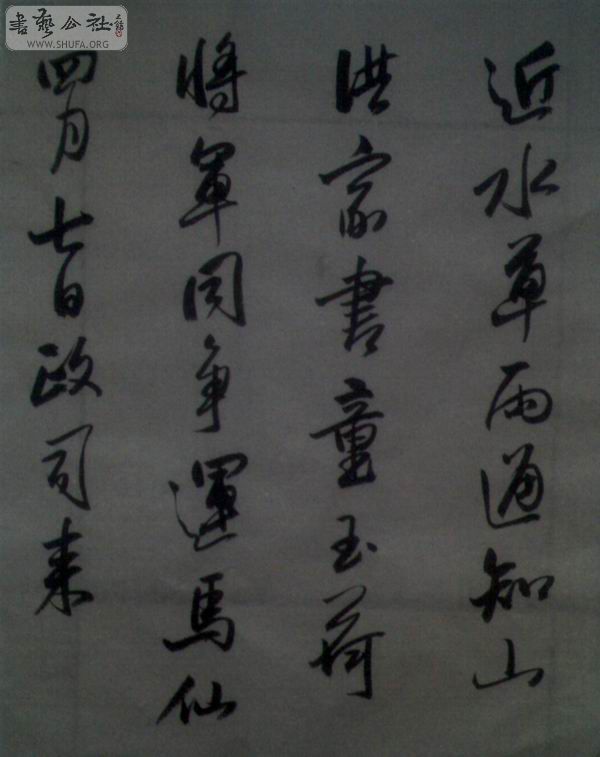 近水草雨通知山
洪家書童玉荷
將軍同爭運馬仙
四月七日政司来
書藝公社
WWW.SHUFA.ORG